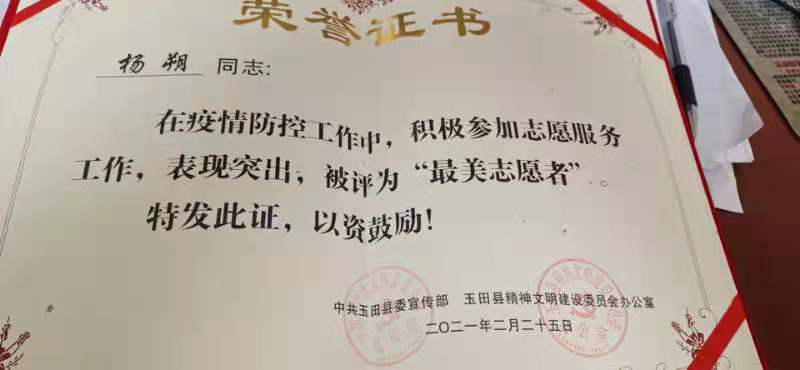 荣誉证书
杨朔 同志：
在疫情防控工作中，积极参加志愿服务
工作，表现突出，被评为“最美志愿者”。
特发此证，以资鼓励！
中共玉田县委宣传部 玉田县精神文明建设委员会办公室
二〇二一年二月二十五日